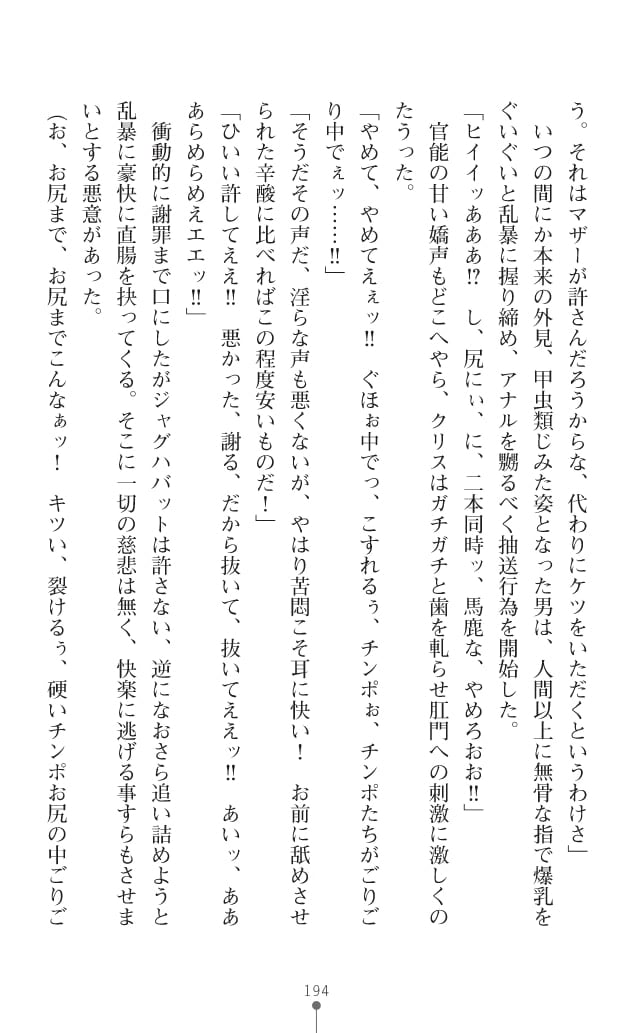 う。それはマザーが許さんだろうからな、代わりにケツをいただくというわけさ」
　いつの間にか本来の外見、甲虫類じみた姿となった男は、人間以上に無骨な指で爆乳を
ぐいぐいと乱暴に握り締め、アナルを嬲るべく抽送行為を開始した。
「ヒイイッあああ!?　し、尻にぃ、に、二本同時ッ、馬鹿な、やめろおお!!」
　官能の甘い嬌声もどこへやら、クリスはガチガチと歯を軋らせ肛門への刺激に激しくの
たうった。
「やめて、やめてえぇッ!!　ぐほぉ中でっ、こすれるぅ、チンポぉ、チンポたちがごりご
り中でぇッ……!!」
「そうだその声だ、淫らな声も悪くないが、やはり苦悶こそ耳に快い！　お前に舐めさせ
られた辛酸に比べればこの程度安いものだ！」
「ひいい許してええ!!　悪かった、謝る、だから抜いて、抜いてええッ!!　あいッ、ああ
あらめらめえエエッ!!」
　衝動的に謝罪まで口にしたがジャグハバットは許さない、逆になおさら追い詰めようと
乱暴に豪快に直腸を抉ってくる。そこに一切の慈悲は無く、快楽に逃げる事すらもさせま
いとする悪意があった。
（お、お尻まで、お尻までこんなぁッ！　キツい、裂けるぅ、硬いチンポお尻の中ごりご
194